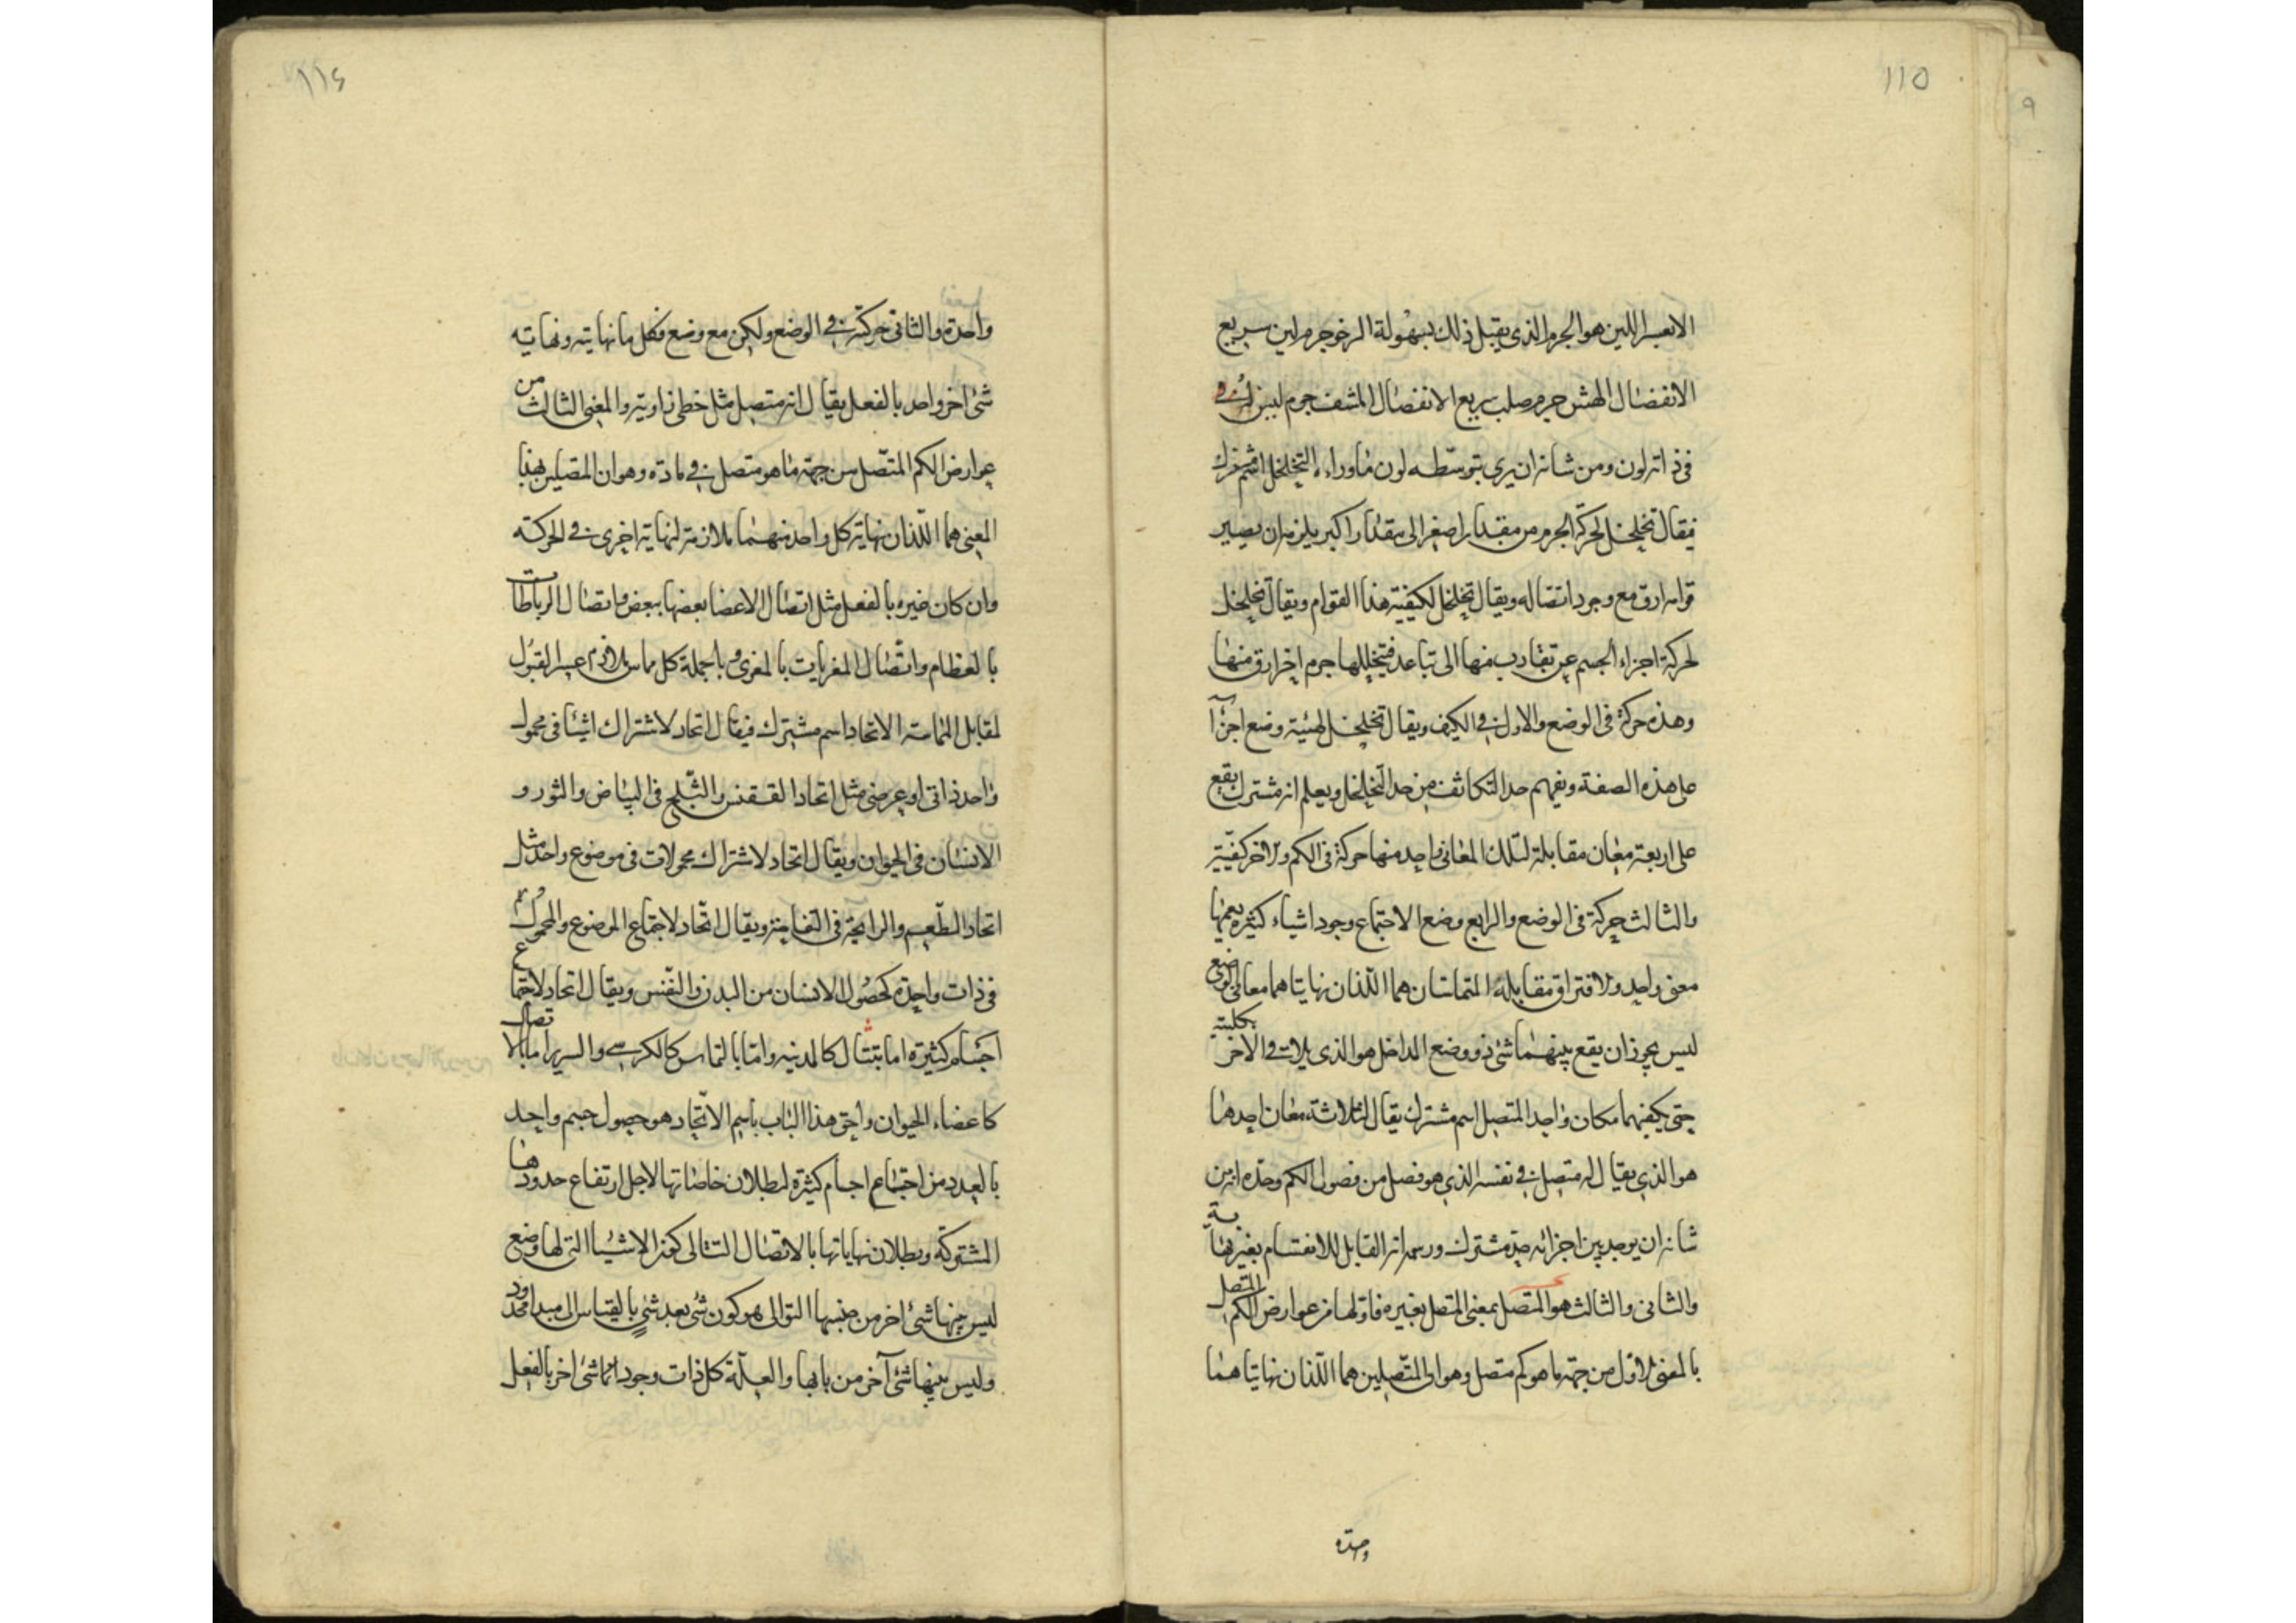 ١١٥
الانعسر اللين هو الجرم الذى يقبل ذلك بسهولة الرخو جرم لين سريع
الانفصال الهش جرم صلب سريع الانفصال المشف جرم ليس له
فى ذاته لون ومن شانه ان يرى بتوسطه لون ماوراءه التخلخل اسم مشترك
فيقال تخلخل لحركة الجرم من مقدار اصغر الى مقدار اكبر يلزم ان يصير
قوامه ارق مع وجود اتصاله ويقال تخلخل لكيفية هذا القوام ويقال تخلخل
لحركة اجزاء الجسم عن تقارب منها الى تباعد فيتخللها جرم اخر ارق منها
وهذه حركة فى الوضع والاول فى الكيف ويقال تخلخل لهيئة وضع اجزآ
على هذه الصفة ويفهم حد التكاثف من حد التخلخل ويعلم انه مشترك يقع
على اربعة معان مقابلة لتلك المعانى واحد منها حركة فى الكم والاخر كيفية
والثالث حركة فى الوضع والرابع وضع الاجتماع وجود اشياء كثيرة يعمها
معنى واحد والافتراق مقابله المتماسان هما اللذان نهايتاهما معا فى الوضع
ليس يجوز ان يقع بينهما شئ ذو وضع المداخل هو الذى يلاقى الاخر بكليته
حتى يكفيهما مكان واحد المتصل اسم مشترك يقال لثلاثة معان احدها
هو الذى يقال له متصل فى نفسه الذى هو فصل من فصول الكم وحده انه من
شانه ان يوجد بين اجزائه حد مشترك ورسمه انه القابل للانقسام بغير نهاية
والثانى والثالث هو المتصل بمعنى المتصل بغيره فاولها من عوارض الكم المتصل
بالمعنى الاول من جهة ما هو كم متصل وهو ان المتصلين هما اللذان نهايتاهما
واحدة
١١٦
واحدة والثانى حركة فى الوضع ولكن مع وضع فكل ما نهايته ونهاية
شئ اخر واحد بالفعل يقال انه متصل مثل خطى زاوية والمعنى الثالث من
عوارض الكم المتصل من جهة ما هو متصل فى مادة وهو ان المتصلين بهذا
المعنى هما اللذان نهاية كل واحد منهما ملازمة لنهاية اخرى فى الحركة
وان كان غيره بالفعل مثل اتصال الاعضا بعضها ببعض واتصال الرباطات
بالعظام واتصال المغريات بالمغرى وبالجملة كل مماس ملازم عسر القبول
لمقابل المماسة الاتحاد اسم مشترك فيقال اتحاد لاشتراك اشيئا فى محمول
واحد ذاتى او عرضى مثل اتحاد الققنس والثلج فى البياض والثور و
الانسان فى الحيوان ويقال اتحاد لاشتراك محمولات فى موضوع واحد مثل
اتحاد الطعم والرائحة فى التفاحة ويقال اتحاد لاجتماع الموضوع والمحمول
فى ذات واحدة كحصول الانسان من البدن والنفس ويقال اتحاد لاجتماع
اجسام كثيرة اما بتتال كالمدينة واما بالتماس كالكرسى والسرير اما بالاتصال
كاعضاء الحيوان واحق هذا الباب باسم الاتحاد هو حصول جسم واحد
بالعدد من اجتماع اجسام كثيرة لبطلان خاصاتها لاجل ارتفاع حدودها
المشتركة وبطلان نهاياتها بالاتصال التتالى كون الاشيئا التى لها وضع
ليس بينها شئ اخر من جنسها التوالى هو كون شئ بعد شئ بالقياس الى مبدا محدود
وليس بينها شئ آخر من بابها والعلة كل ذات وجود انما شئ اخر بالفعل